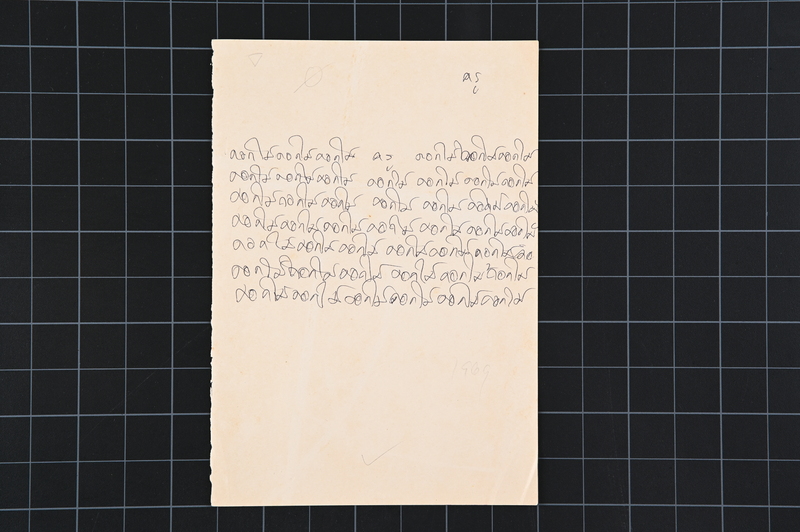 ครู
ดอกไม้ดอกไม้ดอกไม้ ครู ดอกไม้ดอกไม้ดอกไม้
ดอกไม้ดอกไม้ดอกไม้ ดอกไม้ ดอกไม้ ดอกไม้ดอกไม้
ดอกไม้ดอกไม้ดอกไม้ ดอกไม้ ดอกไม้ ดอกไม้ดอกไม้
ดอกไม้ดอกไม้ดอกไม้ดอกไม้ ดอกไม้ ดอกไม้ดอกไม้
ดอกไม้ดอกไม้ดอกไม้ ดอกไม้ดอกไม้ดอกไม้ดอ
ดอกไม้ดอกไม้ดอกไม้ ดอกไม้ดอกไม้ดอกไม้
ดอกไม้ดอกไม้ดอกไม้ดอกไม้ดอกไม้ดอกไม้